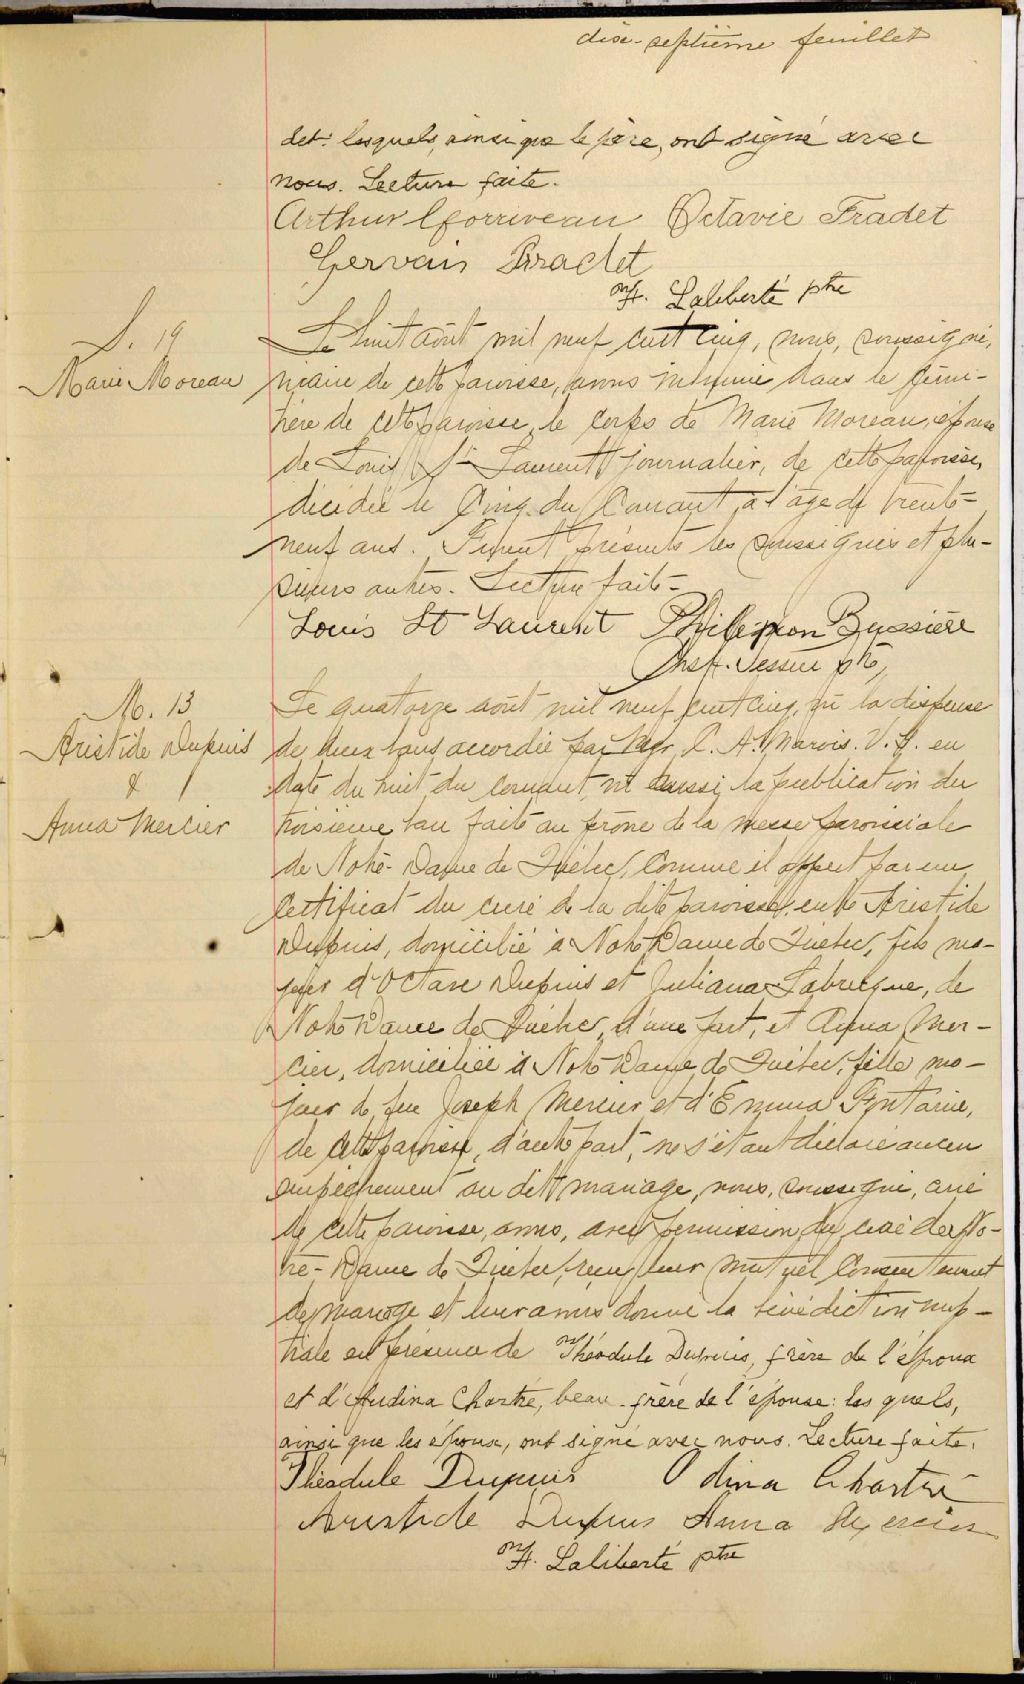 dix-septième feuillet
det: lesquels, ainsi que le père, ont signé avec
nous. Lecture faite.
Arthur Corriveau Octavie Fradet
Gervais Fradet
Laliberté ptre
S. 19
Marie Moreau
Le huit août mil neuf cent cinq, nous, soussigné,
vicaire de cette paroisse, avons inhumé dans le cime-
tière de cette paroisse, le corps de Marie Moreau, épouse
de Louis St Laurent journalier, de cette paroisse,
décédée le cinq du courant, à l'âge de trente-
neuf ans. Furent présents les soussignés et plu-
sieurs autres. Lecture faite-
Louis St Laurent Philémon Bussière
ptre,
M. 13
Aristide Dupuis
&
Anna Mercier
Le quatorze août mil neuf cent cinq, vu la dispense
de deux bans accordée par Mgr C. A. Marois. V. G. en
date du huit du courant, vu aussi la publication du
troisième ban faite au prône de la messe paroissiale
de Notre-Dame de Québec, comme il appert par un
certificat du curé de la dite paroisse, entre Aristide
Dupuis, domicilié à Notre Dame de Québec, fils ma-
jeur d'Octave Dupuis et Juliana Labrecque, de
Notre Dame de Québec, d'une part, et Anna Mer-
cier, domiciliée à Notre Dame de Québec, fille ma-
jeur de feu Joseph Mercier et d'Emma Fontaine,
de cette paroisse, d'autre part, ne s'étant déclaré aucun
empêchement au dit mariage, nous, soussigné, curé
de cette paroisse, avons, avec permission du curé de No-
tre-Dame de Québec, reçu leur mutuel consentement
de mariage et leur avons donné la bénédiction nup-
tiale en présence de Théodule Dupuis, frère de l'époux
et d'Audina Chartré, beau-frère de l'épouse: les quels,
ainsi que les époux, ont signé avec nous. Lecture faite.
Théodule Dupuis Odina Chartré
Aristide Dupuis Anna Mercier
Laliberté ptre